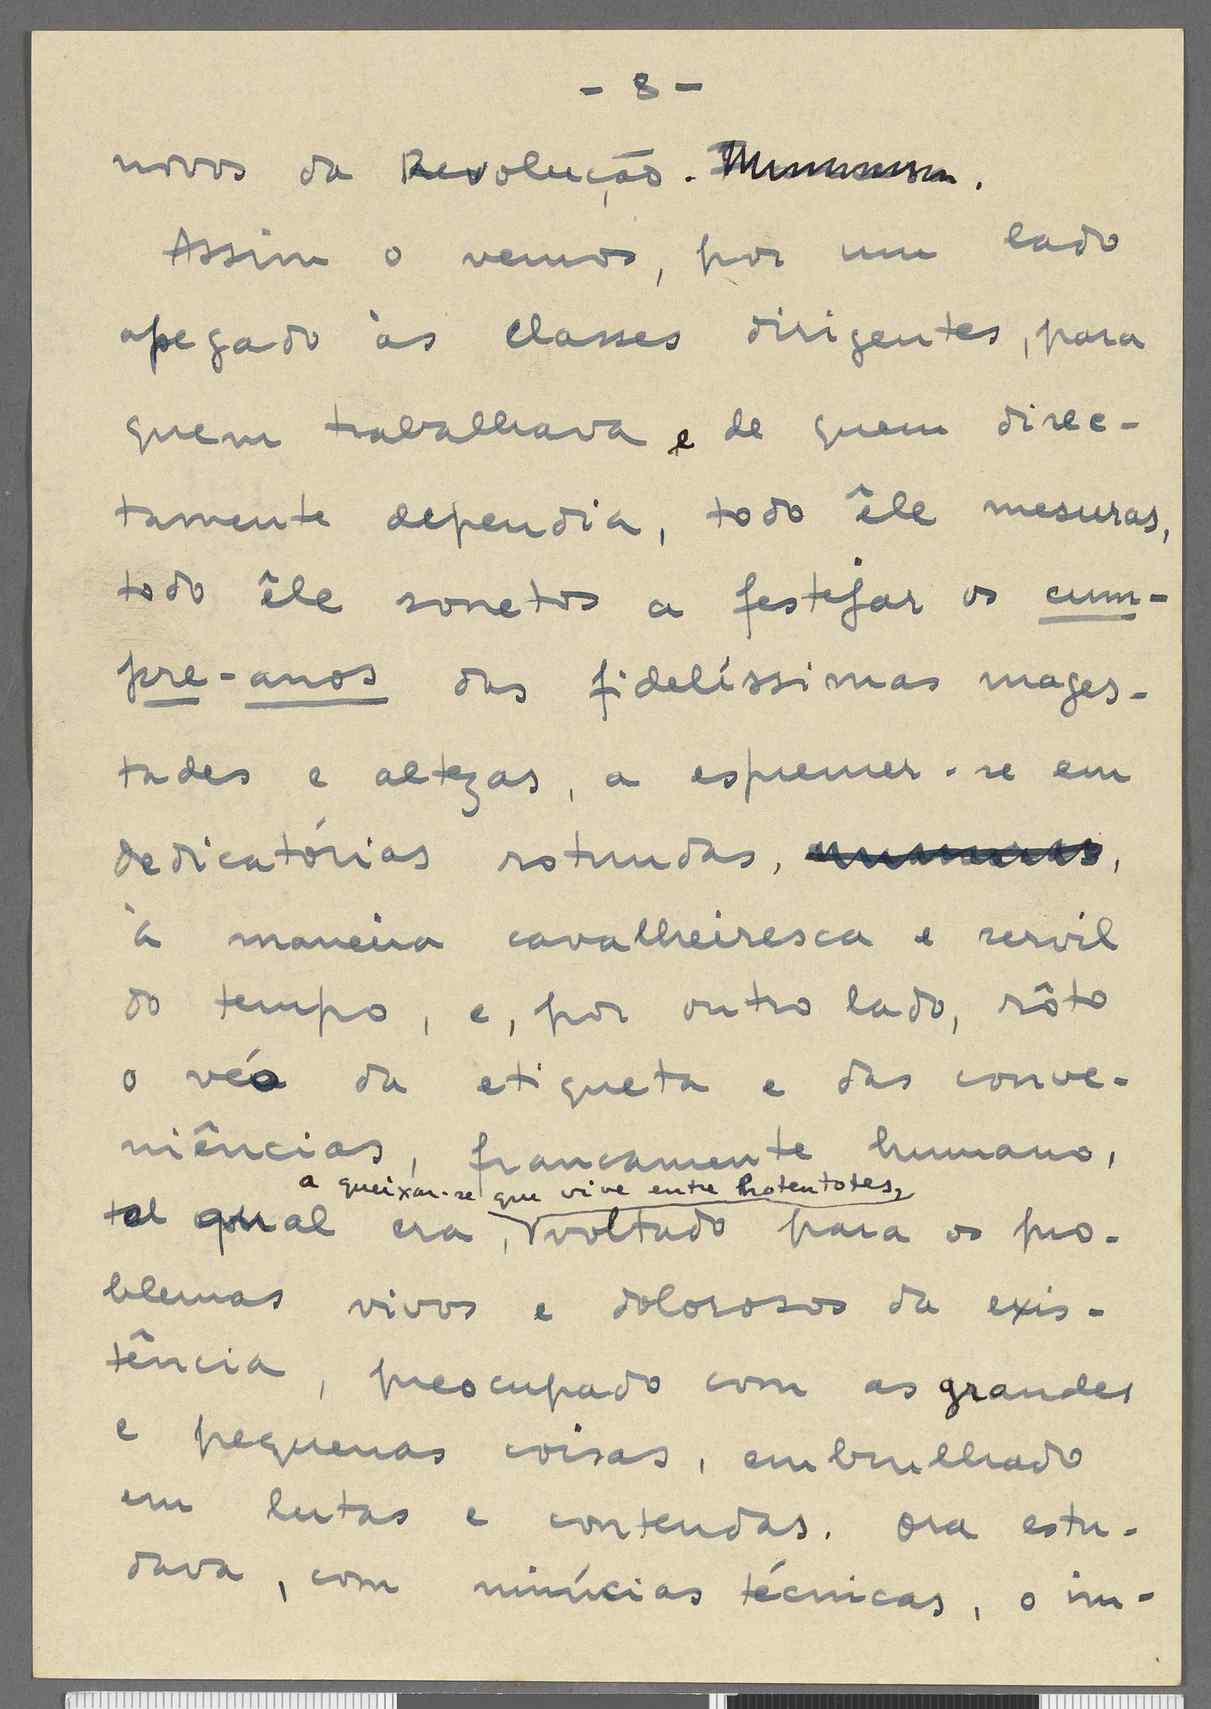 - 8 -
novos da Revolução.
Assim o vemos, por um lado
apegado às classes dirigentes, para
quem trabalhava e de quem direc-
tamente dependia, todo êle mesuras,
todo êle sonetos a festejar os cum-
pre-anos das fidelíssimas mages-
tades e altezas, a espremer-se em
dedicatórias rotundas,
à maneira cavalheiresca e servil
do tempo, e, por outro lado, rôto
o véo da etiqueta e das conve-
niências, francamente humano,
a queixar-se que vive entre hotentotes,
tal qual era, voltado para os pro-
blemas vivos e dolorosos da exis-
tência, preocupado com as grandes
e pequenas coisas, embrulhado
em lutas e contendas. Ora estu-
dava, com minúcias técnicas, o im-